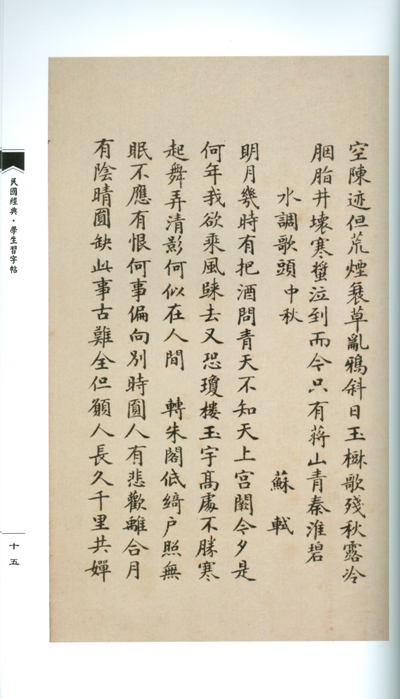 空陳迹但荒煙衰草亂鴉斜日玉樹歌殘秋露冷
胭脂井壞寒螿泣到而今只有蔣山青秦淮碧
水調歌頭中秋 蘇軾
明月幾時有把酒問青天不知天上宮闕今夕是
何年我欲乘風歸去又恐瓊樓玉宇高處不勝寒
起舞弄清影何似在人間 轉朱閣低綺户照無
眠不應有恨何事偏向別時圓人有悲歡離合月
有陰晴圓缺此事古難全但願人長久千里共嬋
民國經典·學生習字帖
十五